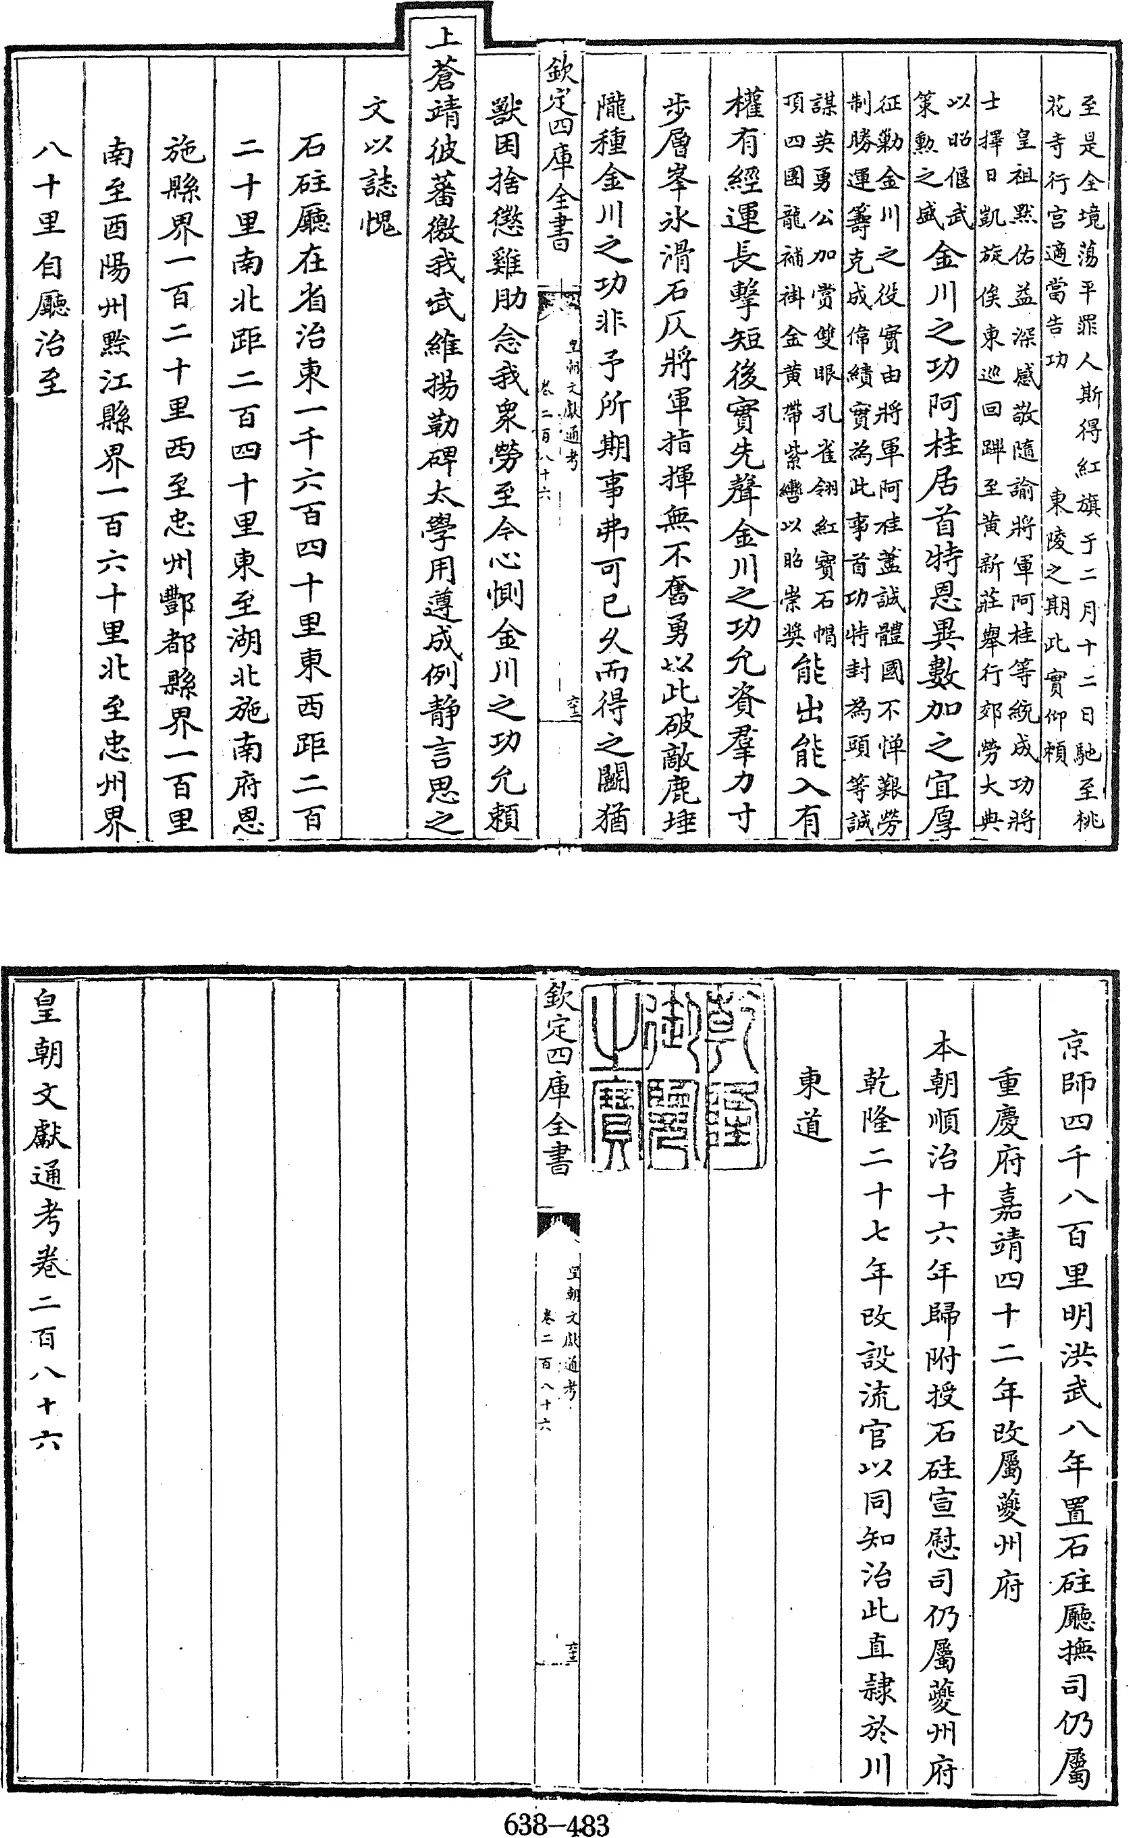 至是全境蕩平罪人斯得紅旗于二月十二日馳至桃
花寺行宫適當告功　東陵之期此實仰賴
皇祖黙佑益深感敬隨諭將軍阿桂等統成功將
士擇日凱旋俟東巡回蹕至黄新莊舉行郊勞大典
以昭偃武
策勲之盛
金川之功阿桂居首特恩異數加之宜厚
征勦金川之役實由將軍阿桂藎誠體國不憚艱勞
制勝運籌克成偉績實為此事首功特封為頭等誠
謀英勇公加賞雙眼孔雀翎紅寳石帽
頂四團龍補褂金黄帶紫轡以昭崇奬
能出能入有
權有經運長擊短後實先聲金川之功允資羣力寸
步層峯氷滑石仄將軍指揮無不奮勇以此破敵鹿埵
隴種金川之功非予所期事弗可已乆而得之鬬猶
欽定四庫全書
皇朝文獻通考
卷二百八十六
獸困捨慫雞肋念我衆勞至今心惻金川之功允賴
上蒼靖彼蕃徼我武維揚勒碑太學用遵成例静言思之
文以誌愧
石砫廳在省治東一千六百四十里東西距二百
二十里南北距二百四十里東至湖北施南府恩
施縣界一百二十里西至忠州酆都縣界一百里
南至酉陽州黔江縣界一百六十里北至忠州界
八十里自廳治至
京師四千八百里明洪武八年置石砫廳撫司仍屬
重慶府嘉靖四十二年改屬夔州府
本朝順治十六年歸附授石砫宣慰司仍屬夔州府
乾隆二十七年改設流官以同知治此直隷於川
東道
乾隆御覽之寳
欽定四庫全書
皇朝文獻通考
卷二百八十六
皇朝文獻通考卷二百八十六
638-483